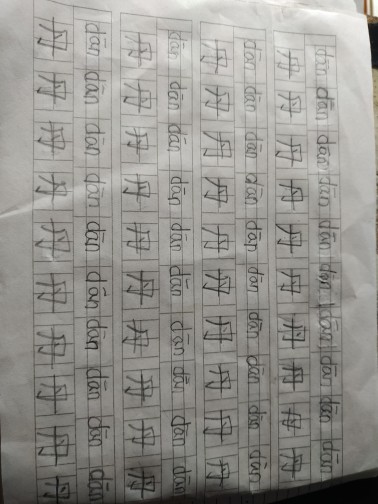 dān dān dān dān dān dān dān dān dān dān
丹 丹 丹 丹 丹 丹 丹 丹 丹 丹
dān dān dān dān dān dān dān dān dān dān
丹 丹 丹 丹 丹 丹 丹 丹 丹 丹
dān dān dān dān dān dān dān dān dān dān
丹 丹 丹 丹 丹 丹 丹 丹 丹 丹
dān dān dān dān dān dān dān dān dān dān
丹 丹 丹 丹 丹 丹 丹 丹 丹 丹